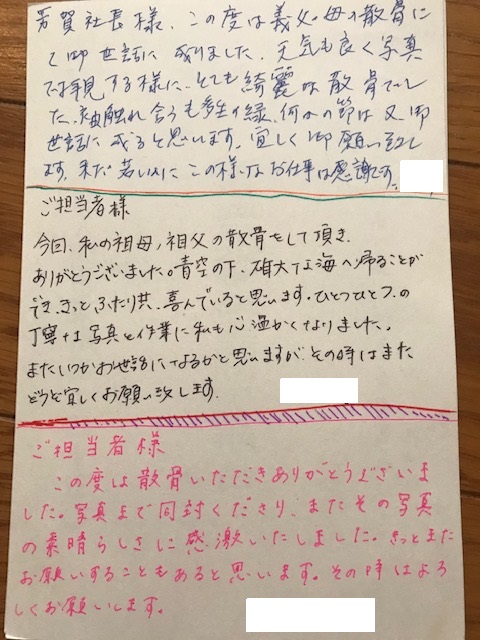 芳賀社長様、この度は義父、母の散骨に
て御世話に成りました。天気も良く写真
で拝見する様に、とても綺麗な散骨でし
た。袖触れ合うも多生の縁、何かの節は又、御
世話に成ると思います。宜しく御願い致し
ます。まだ若いのにこの様なお仕事は感謝です。
ご担当者様
今回、私の祖母、祖父の散骨をして頂き、
ありがとうございました。青空の下、雄大な海へ帰ることが
でき、きっとふたり共、喜んでいると思います。ひとつひとつの
丁寧な写真と作業に私も心温かくなりました。
またいつかお世話になるかと思いますが、その時はまた
どうぞ宜しくお願い致します。
ご担当者様
この度は散骨いただきありがとうございま
した。写真まで同封くださり、またその写真
の素晴らしさに感激いたしました。きっとまた
お願いすることもあると思います。その時はよろ
しくお願いします。